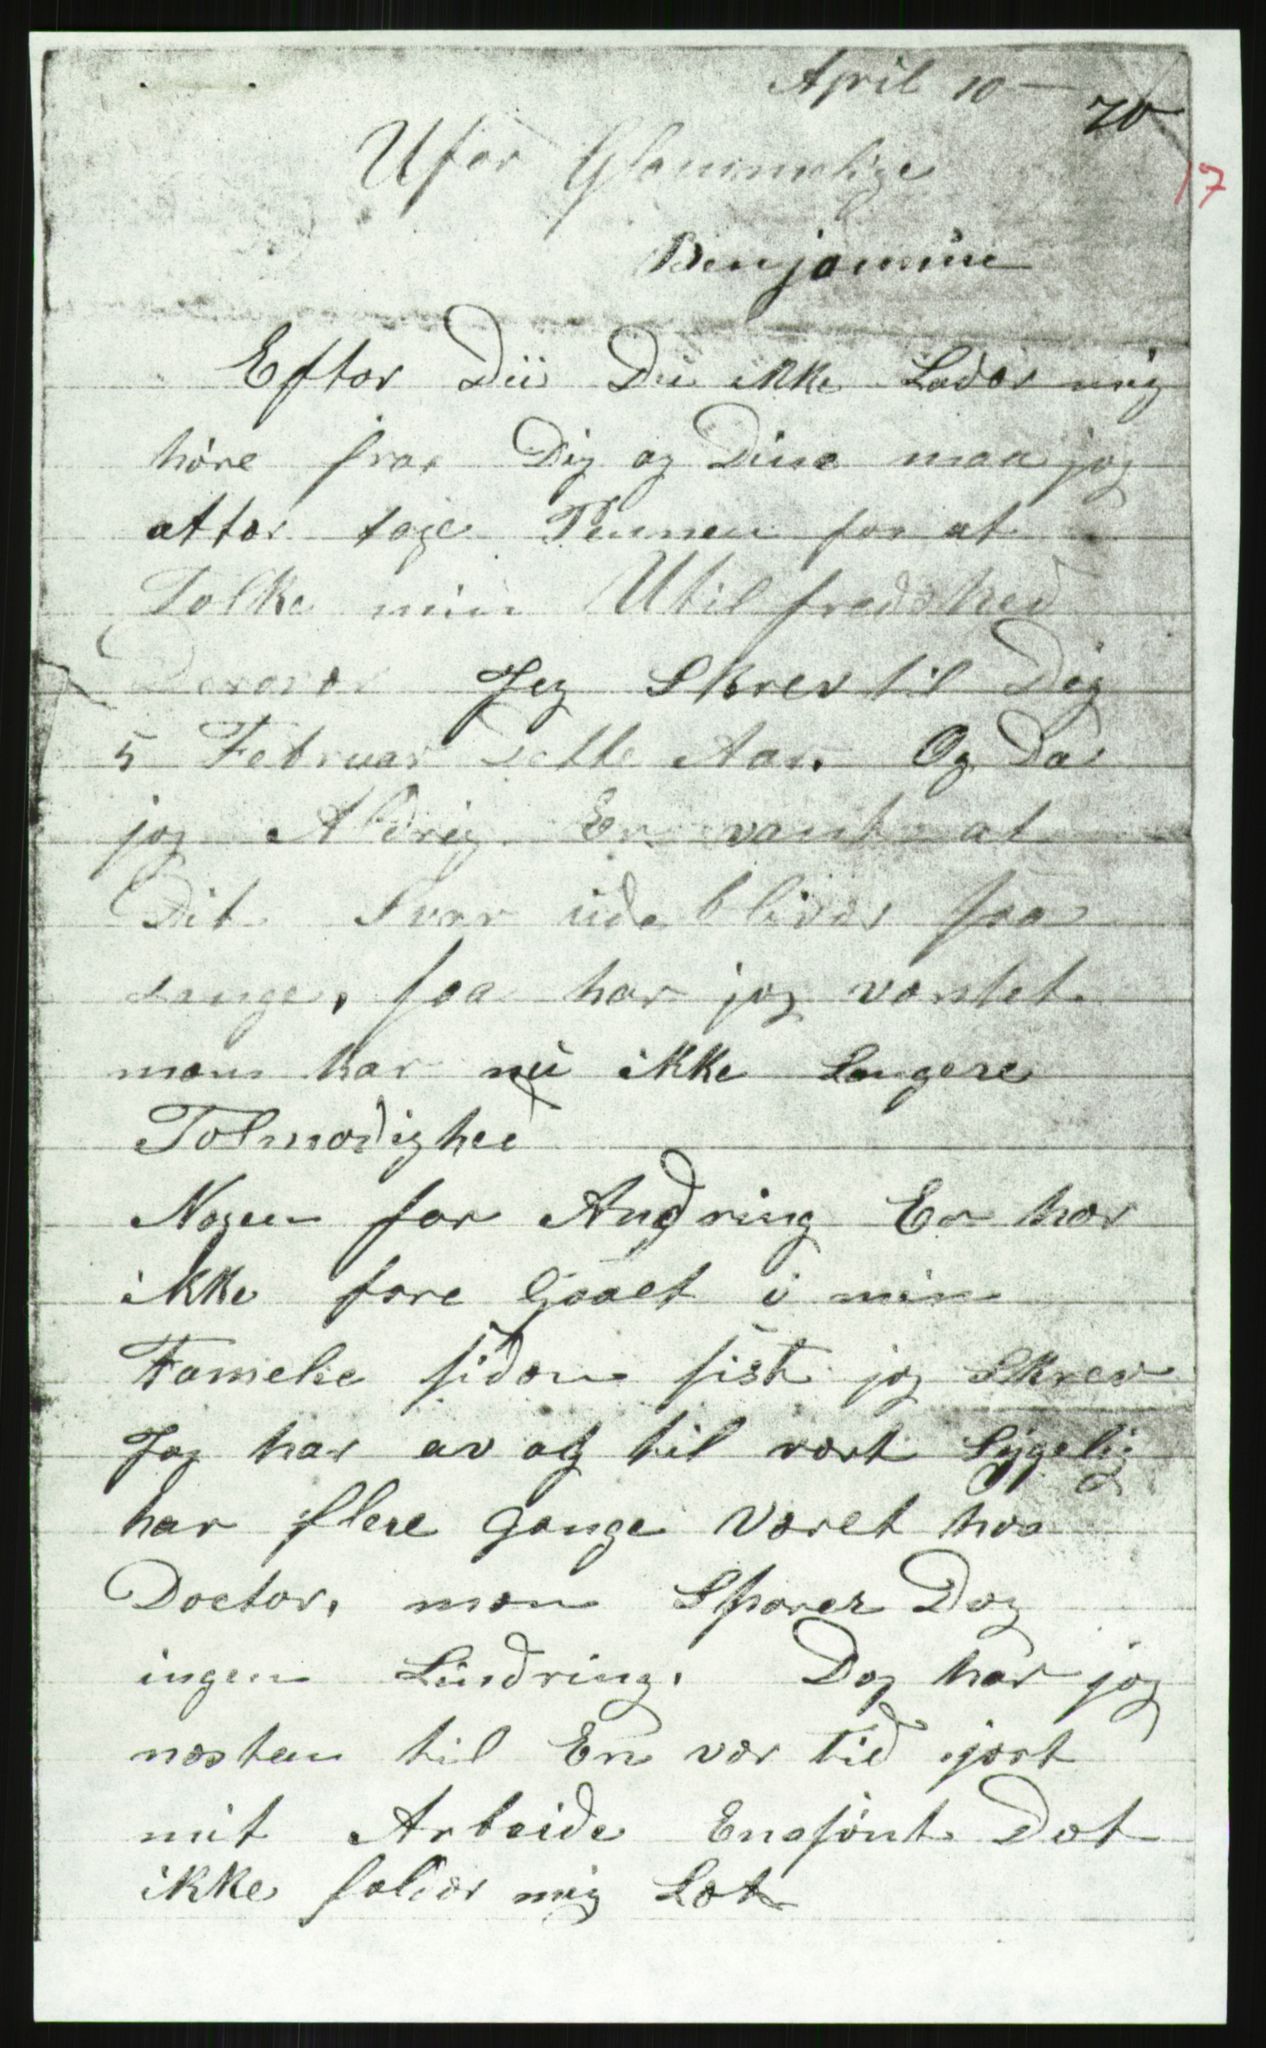 April 10 —
20
17
Ufor Glemmelige
Benjamine
Efter Dii Du ikke Lader mig
høre fra Dig og Dine maa jeg
atter tage Pennen for at
Tolke min Utilfredshed
Derover Jeg Skrev til Dig
5 Februar dette Aar. Og Da
jeg Aldrig Er vant at
Dit Svar udebliver saa
Længe, saa har jeg ventet
men har nu ikke Længere
Tolmodighed
Nogen for Andring Er her
ikke fore Gaaet i min
Famelie siden sist jeg Skrev
Jeg har av og til vært Sygelig
har flere Gange Været hos
Doctor, men Sporer Dog
ingen Lindring. Dog har jeg
nesten til En ver tid gjort
mit Arbeide Ensjønt Det
ikke falder mig Let